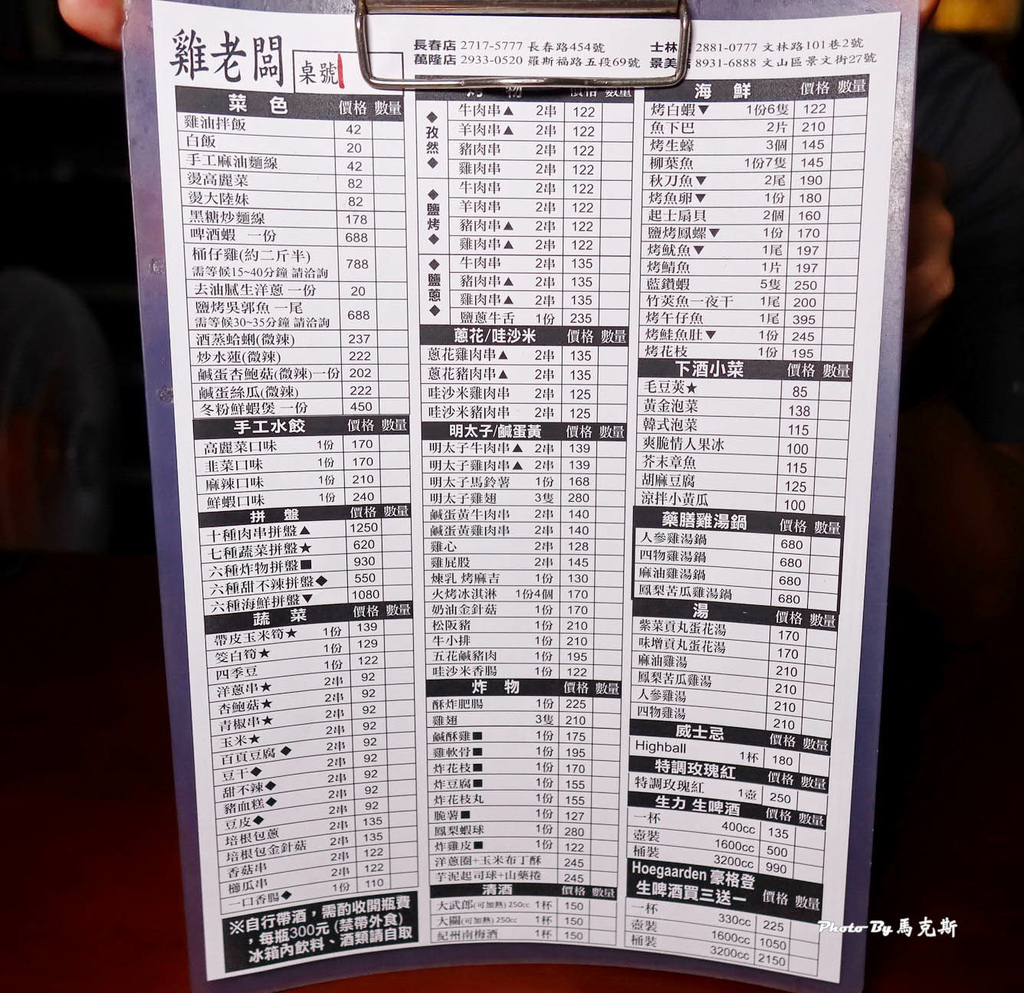 雞老闆
桌號
長春店 2717-5777 長春路454號
萬隆店 2933-0520 羅斯福路五段69號
士林 2881-0777 文林路101巷2號
景美 8931-6888 文山區景文街27號
菜 色 價格 數量
雞油拌飯 42
白飯 20
手工麻油麵線 42
燙高麗菜 82
燙大陸妹 82
黑糖炒麵線 178
啤酒蝦 一份 688
桶仔雞(約二斤半) 788
需等候15~40分鐘 請洽詢
去油膩生洋蔥 一份 20
鹽烤吳郭魚 一尾 688
需等候30~35分鐘 請洽詢
酒蒸蛤蜊(微辣) 237
炒水蓮(微辣) 222
鹹蛋杏鮑菇(微辣)一份 202
鹹蛋絲瓜(微辣) 222
冬粉鮮蝦煲 一份 450
手工水餃 價格 數量
高麗菜口味 1份 170
韭菜口味 1份 170
麻辣口味 1份 210
鮮蝦口味 1份 240
拼 盤 價格 數量
十種肉串拼盤▲ 1250
七種蔬菜拼盤★ 620
六種炸物拼盤■ 930
六種甜不辣拼盤◆ 550
六種海鮮拼盤▼ 1080
蔬 菜 價格 數量
帶皮玉米筍★ 1份 139
筊白筍★ 1份 129
四季豆 1份 122
洋蔥串★ 2串 92
杏鮑菇★ 2串 92
青椒串★ 2串 92
玉米★ 2串 92
百頁豆腐◆ 2串 92
豆干◆ 2串 92
甜不辣◆ 2串 92
豬血糕◆ 2串 92
豆皮◆ 2串 92
培根包蔥 2串 135
培根包金針菇 2串 135
香菇串 2串 122
櫛瓜串 2串 122
一口香腸◆ 1份 110
※自行帶酒，需酌收開瓶費
，每瓶300元 (禁帶外食)
冰箱內飲料、酒類請自取
烤 物 價格 數量
◆孜然◆
牛肉串▲ 2串 122
羊肉串▲ 2串 122
豬肉串 2串 122
雞肉串 2串 122
◆鹽烤◆
牛肉串 2串 122
羊肉串 2串 122
豬肉串▲ 2串 122
雞肉串▲ 2串 122
◆鹽蔥◆
牛肉串 2串 135
豬肉串▲ 2串 135
雞肉串▲ 2串 135
鹽蔥牛舌 1份 235
蔥花/哇沙米 價格 數量
蔥花雞肉串▲ 2串 135
蔥花豬肉串▲ 2串 135
哇沙米雞肉串 2串 125
哇沙米豬肉串 2串 125
明太子/鹹蛋黃 價格 數量
明太子牛肉串▲ 2串 139
明太子雞肉串▲ 2串 139
明太子馬鈴薯 1份 168
明太子雞翅 3隻 280
鹹蛋黃牛肉串 2串 140
鹹蛋黃雞肉串 2串 140
雞心 2串 128
雞屁股 2串 145
煉乳 烤麻吉 1份 130
火烤冰淇淋 1份4個 170
奶油金針菇 1份 170
松阪豬 1份 210
牛小排 1份 210
五花鹹豬肉 1份 195
哇沙米香腸 1份 122
炸 物 價格 數量
酥炸肥腸 1份 225
雞翅 3隻 210
鹹酥雞■ 1份 175
雞軟骨■ 1份 195
炸花枝■ 1份 170
炸豆腐■ 1份 155
炸花枝丸 1份 155
脆薯■ 1份 127
鳳梨蝦球 1份 280
炸雞皮■ 1份 122
洋蔥圈+玉米布丁酥 245
芋泥起司球+山藥捲 245
清酒 價格 數量
大武郎(可加熱)250cc 1杯 150
大關(可加熱)250cc 1杯 150
紀州南梅酒 1杯 150
海 鮮 價格 數量
烤白蝦▼ 1份6隻 122
魚下巴 2片 210
烤生蠔 3個 145
柳葉魚 1份7隻 145
秋刀魚▼ 2尾 190
烤魚卵▼ 1份 180
起士扇貝 2個 160
鹽烤鳳螺▼ 1份 170
烤魷魚▼ 1尾 197
烤鯖魚 1片 197
藍鑽蝦 5隻 250
竹莢魚一夜干 1尾 200
烤午仔魚 1尾 395
烤鮭魚肚▼ 1份 245
烤花枝 1份 195
下酒小菜 價格 數量
毛豆莢★ 85
黃金泡菜 138
韓式泡菜 115
爽脆情人果冰 100
芥末章魚 115
胡麻豆腐 125
涼拌小黃瓜 100
藥膳雞湯鍋 價格 數量
人參雞湯鍋 680
四物雞湯鍋 680
麻油雞湯鍋 680
鳳梨苦瓜雞湯鍋 680
湯 價格 數量
紫菜貢丸蛋花湯 170
味增貢丸蛋花湯 170
麻油雞湯 210
鳳梨苦瓜雞湯 210
人參雞湯 210
四物雞湯 210
威士忌 價格 數量
Highball 1杯 180
特調玫瑰紅 價格 數量
特調玫瑰紅 1壺 250
生力 生啤酒 價格 數量
一杯 400cc 135
壺裝 1600cc 500
桶裝 3200cc 990
Hoegaarden 豪格登
生啤酒買三送一 價格 數量
一杯 330cc 225
壺裝 1600cc 1050
桶裝 3200cc 2150
Photo By 馬克斯